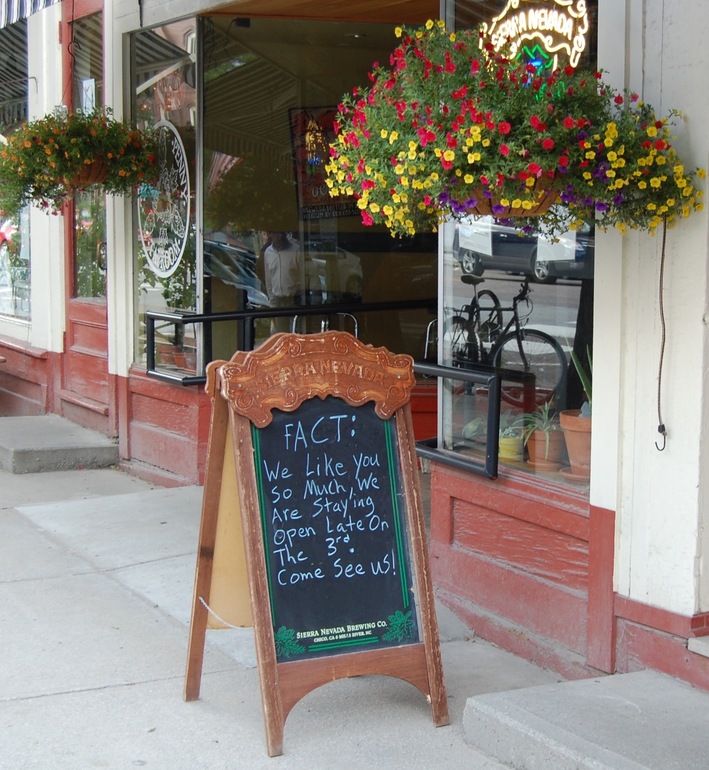 SIERRA NEVADA
SIERRA NEVADA
FACT:
We Like you
So Much, We
Are Staying
Open Late On
The 3rd.
Come See us!
SIERRA NEVADA BREWING CO.
CHICO, CA & MILLS RIVER, NC